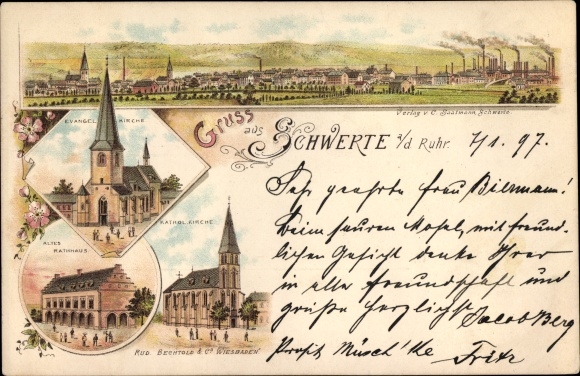 Verlag v. C. Baatmann, Schwerte.
Gruss aus SCHWERTE a/d Ruhr. 7/1.97.
EVANGEL. KIRCHE
KATHOL. KIRCHE
ALTES RATHHAUS.
RUD. BECHTOLD & Co. WIESBADEN
Sehr geehrte Frau Biermann!
Beim sauren Mosel, mit freund-
lichen Gesicht denke Ihrer
in aller Freundschaft und
grüße herzlichst Jacob Berg
Prosit Fritz